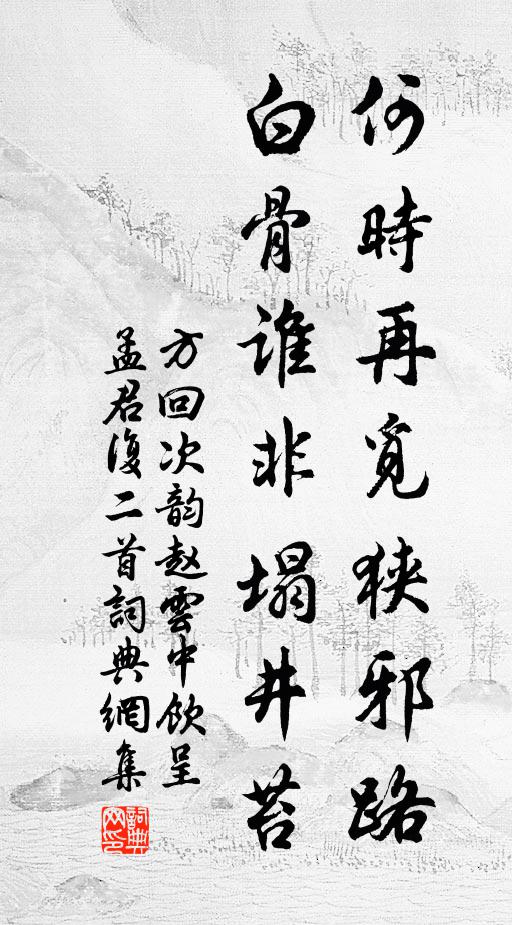 何時再覓狹邪路
白骨谁非塌井苔
方回次韵赵雲中飲呈
孟君復二首詞典網集
詞典
网印